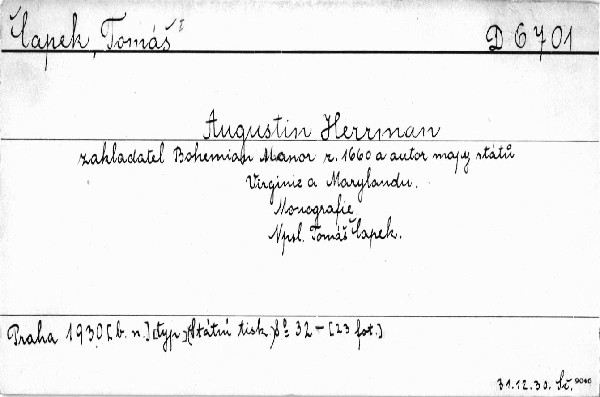 Čapek, Tomáš D 6701
Augustin Herrman
zakladatel Bohemian Manor r. 1660 a autor mapy států
Virginie a Marylandu.
Monografie
Npsl. Tomáš Čapek.
Praha 1930 [b. n.] [typ.] (Státní tisk.) 8° 32 - [23 fot.]
31.12.30. Sč. 9040